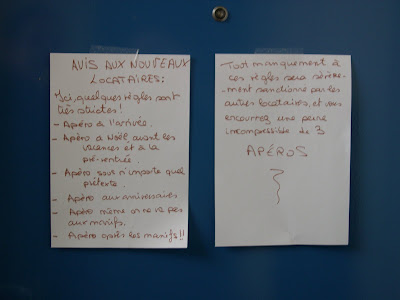 AVIS AUX NOUVEAUX
LOCATAIRES:
Ici, quelques règles sont
très strictes!
- Apéro à l'arrivée.
- Apéro à Noël, avant les
vacances et à la
pré-rentrée.
- Apéro sous n'importe quel
prétexte.
- Apéro aux anniversaires
- Apéro même si on ne va pas
aux manifs.
- Apéro après les manifs!!
Tout manquement à
ces règles sera sévère-
ment sanctionné par les
autres locataires, et vous
encourrez une peine
incompressible de 3
APÉROS